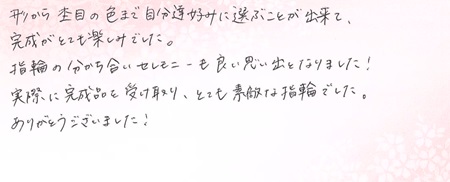 形から杢目の色まで自分達好みに選ぶことが出来て、
完成がとても楽しみでした。
指輪の分かち合いセレモニーも良い思い出となりました！
実際に完成品を受け取り、とても素敵な指輪でした。
ありがとうございました！